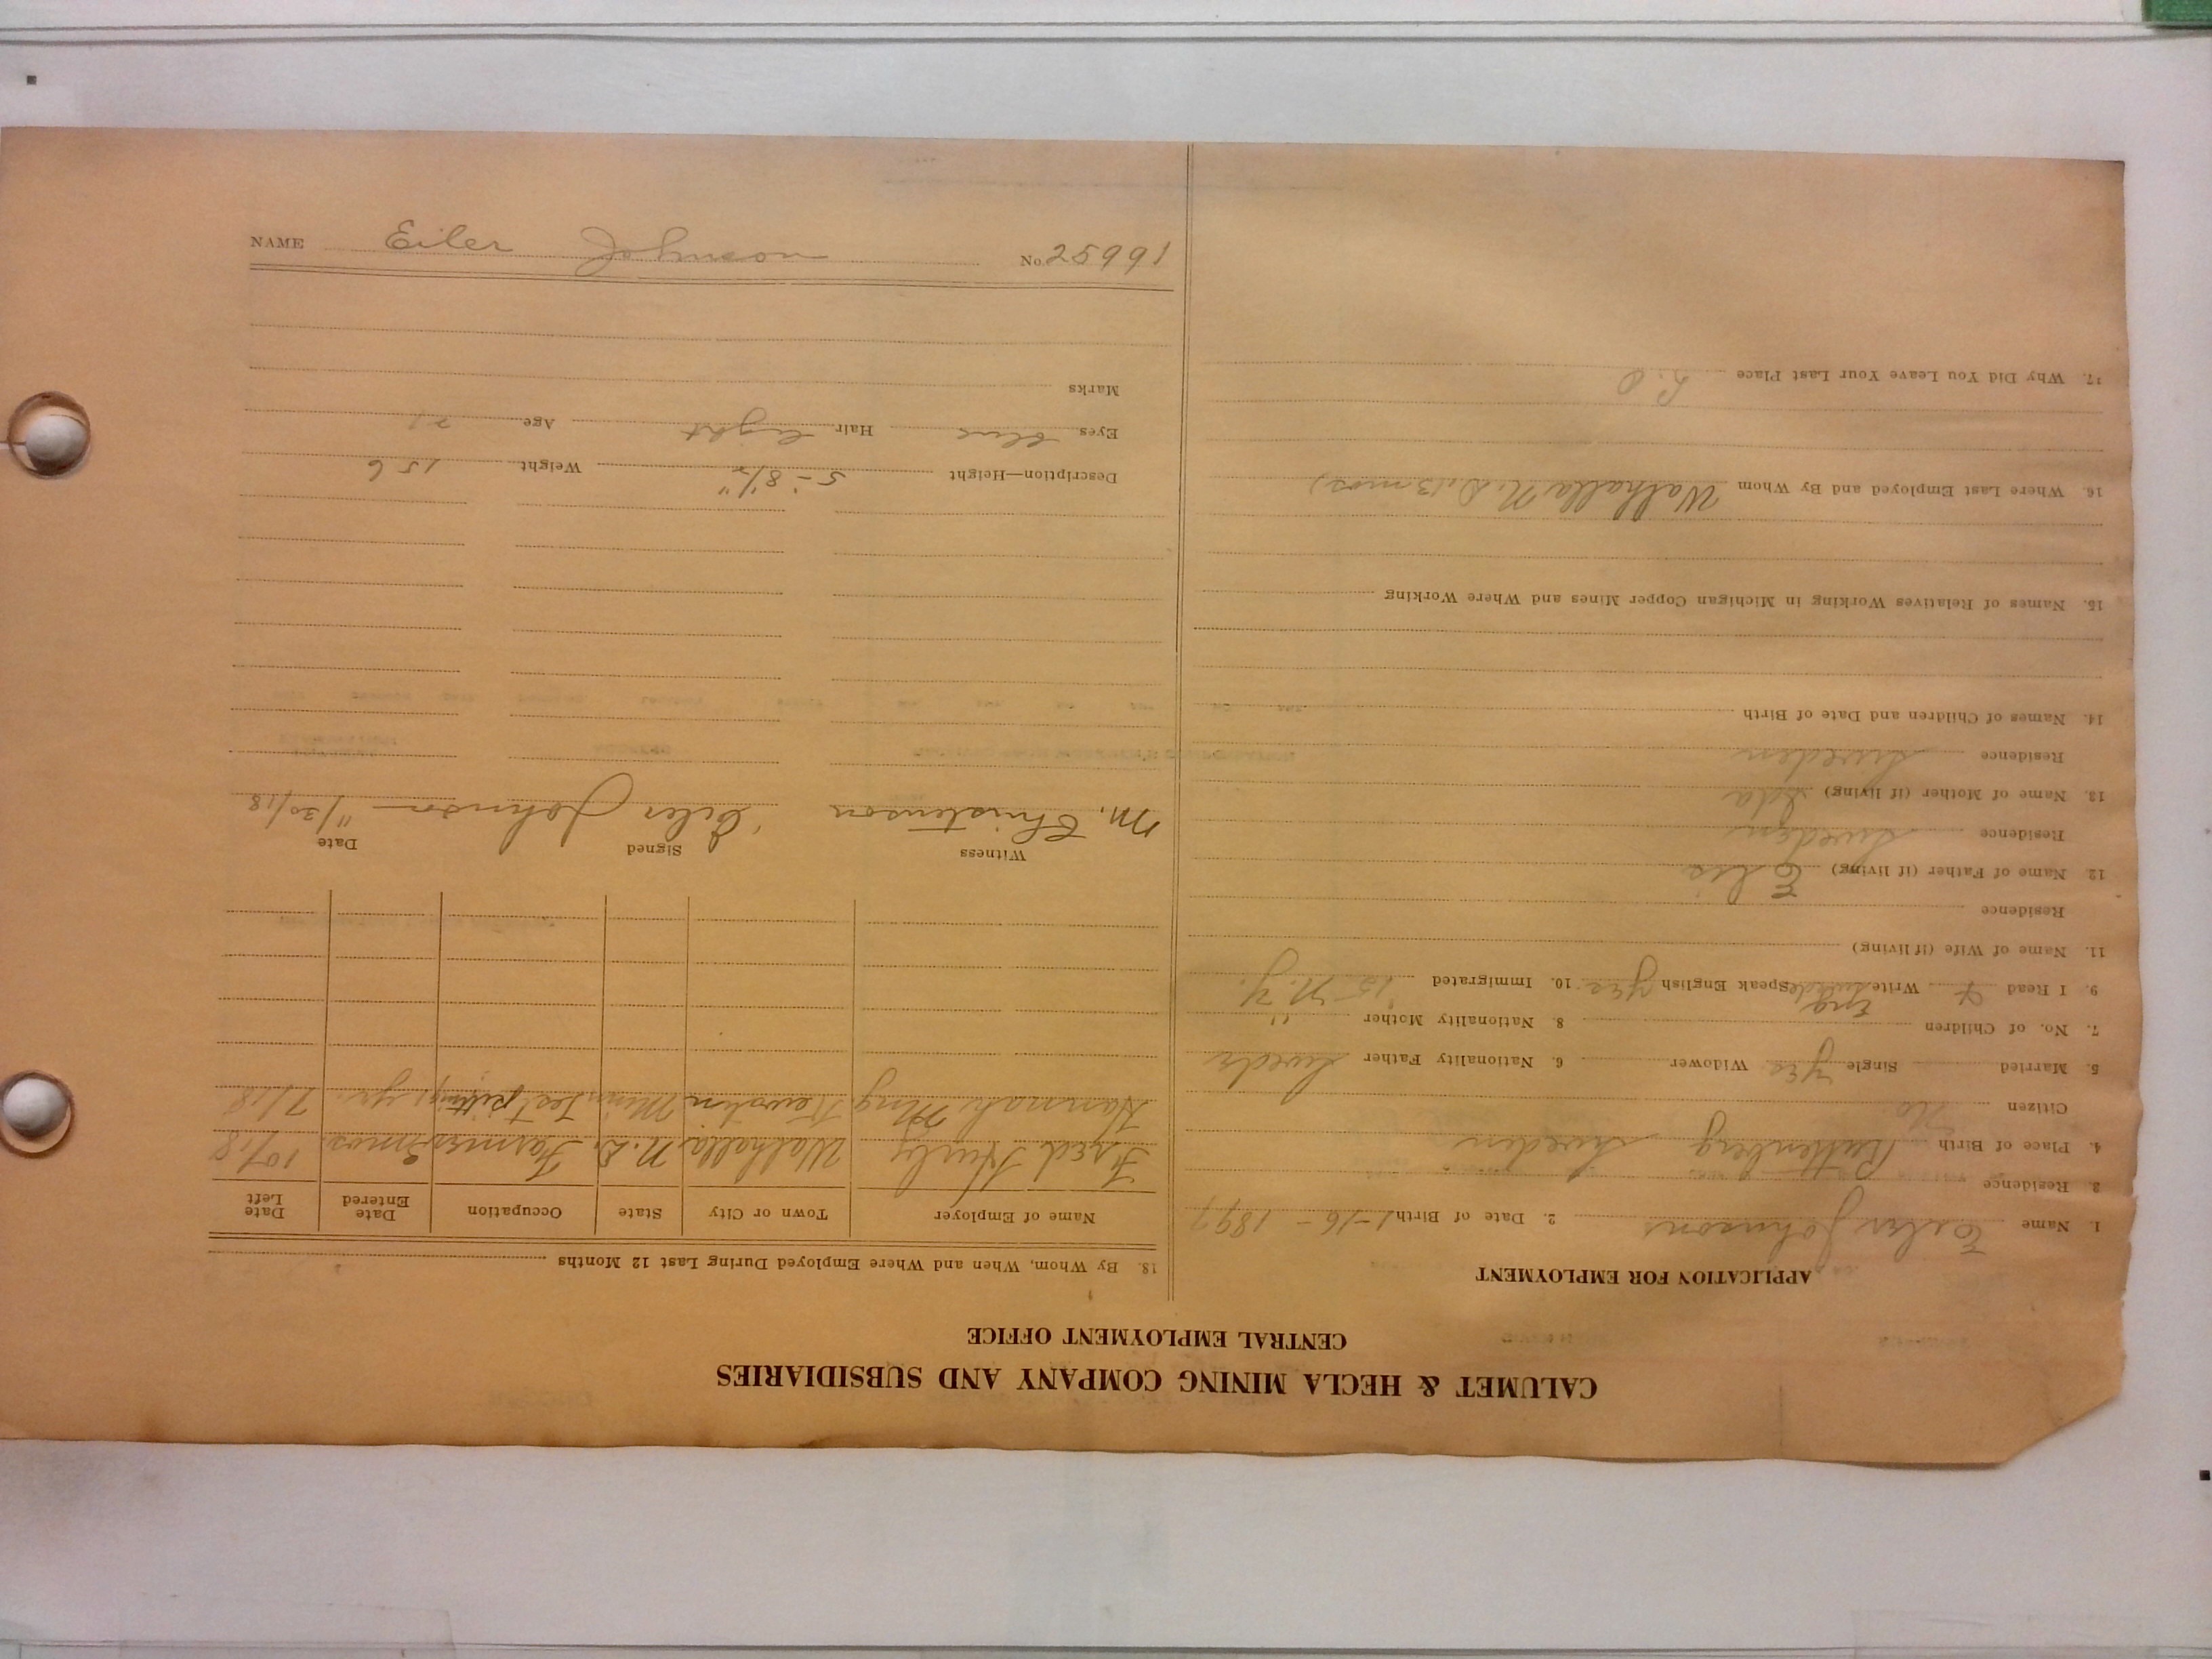 CALUMET & HECLA MINING COMPANY AND SUBSIDIARIES
CENTRAL EMPLOYMENT OFFICE
APPLICATION FOR EMPLOYMENT
1. Name Eiler Johnson 2. Date of Birth 1-16-1897
3. Residence
4. Place of Birth Sweden
Citizen No
5. Married Single yes Widower 6. Nationality Father Swede
7. No. of Children 8. Nationality Mother "
Eng
9. I Read & Write Swede Speak English yes 10. Immigrated 15 N.Y.
11. Name of Wife (if living)
Residence
12. Name of Father (if living) Elis
Residence Sweden
13. Name of Mother (if living) Ida
Residence Sweden
14. Names of Children and Date of Birth
15. Names of Relatives Working in Michigan Copper Mines and Where Working
16. Where Last Employed and By Whom Walhalla N.D. (3 mos)
17. Why Did You Leave Your Last Place
18. By Whom, When and Where Employed During Last 12 Months
Name of Employer Town or City State Occupation Date Entered Date Left
Fred Walhalla N.D. Farmer 3 mos. 10/18
Hannah Mng Minn. Test pitting yr. 7/18
Witness Signed Date
M. Christenson Eiler Johnson 11/30/18
Description—Height 5-8½" Weight 156
Eyes blue Hair light Age 21
Marks
NAME Eiler Johnson No. 25991